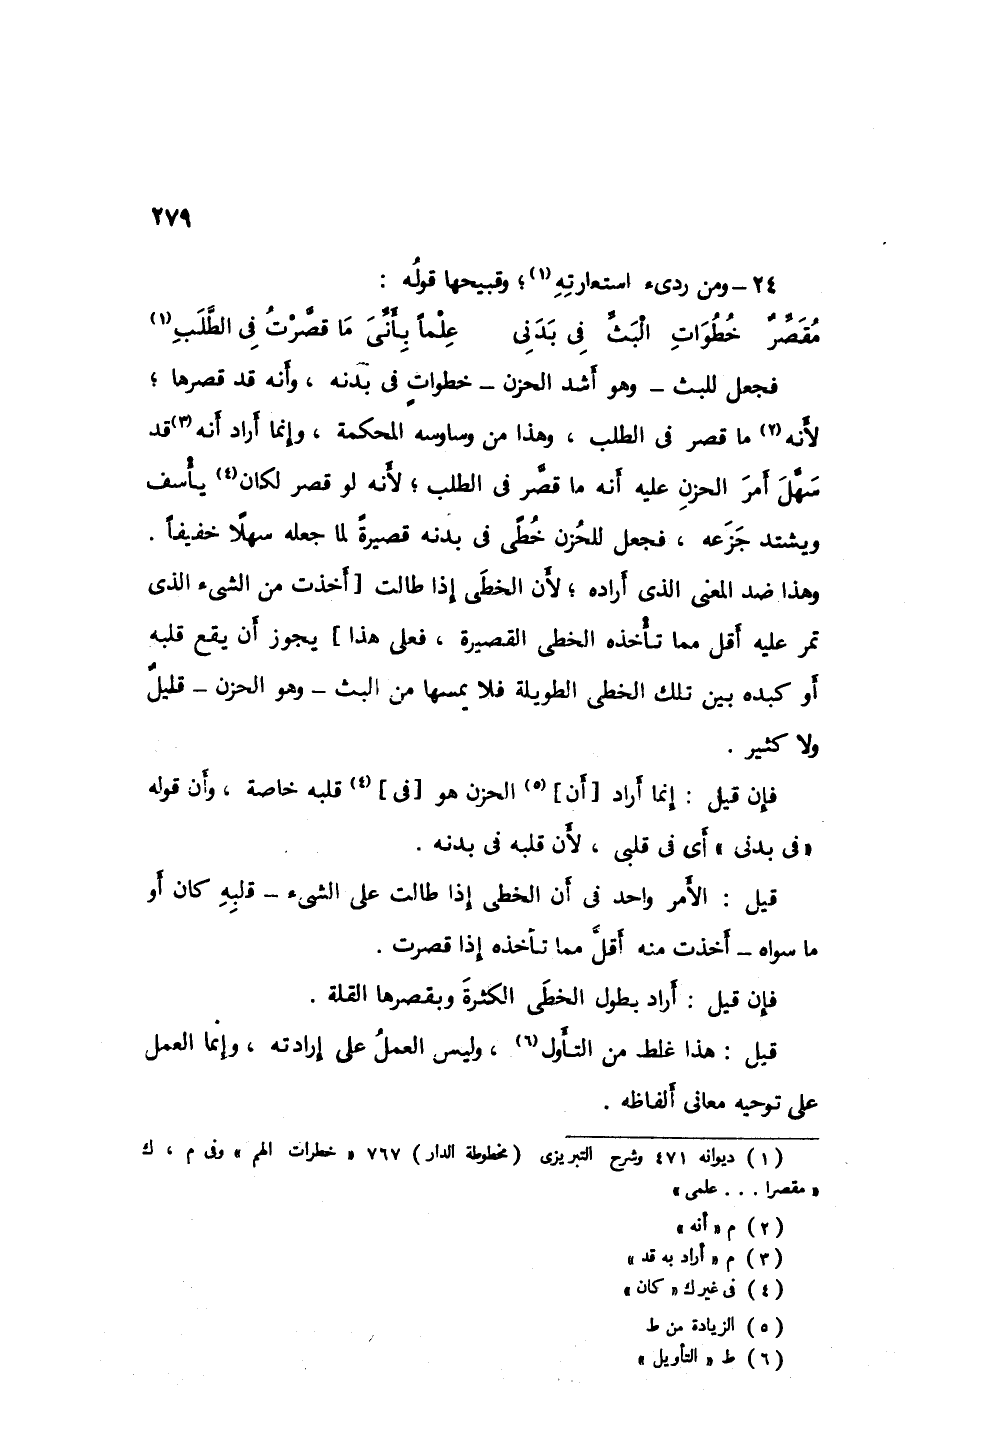 ٢٧٩
٢٤ – ومن ردىء استعارتِهِ(١)؛ وقبيحها قولُه :
مُقَصِّرٌ خُطُوَاتِ الْبَثِّ فِى بَدَنِى عِلْماً بِأَنِّىَ مَا قصَّرْتُ فِى الطَّلَبِ(١)
فجعل للبث – وهو أشد الحزن – خطواتٍ فى بدنه ، وأنه قد قصرها ؛
لأَنه(٢) ما قصر فى الطلب ، وهذا من وساوسه المحكمة ، وإنما أراد أنه(٣) قد
سَهَّلَ أَمرَ الحزنِ عليه أنه ما قصَّر فى الطلب ؛ لأَنه لو قصر لكان(٤) يأْسف
ويشتد جَزَعه ، فجعل للحُزن خُطًى فى بدنه قصيرةً لما جعله سهلًا خفيفاً .
وهذا ضد المعنى الذى أَراده ؛ لأَن الخطَى إذا طالت [ أَخذت من الشىء الذى
تمر عليه أقل مما تأْخذه الخطى القصيرة ، فعلى هذا ] يجوز أَن يقع قلبه
أَو كبده بين تلك الخطى الطويلة فلا يمسها من البث – وهو الحزن – قليلٌ
ولا كثير .
فإن قيل : إنما أَراد [ أَن ](٥) الحزن هو [ فى ](٤) قلبه خاصة ، وأَن قوله
« فى بدنى » أَى فى قلبى ، لأَن قلبه فى بدنه .
قيل : الأَمر واحد فى أَن الخطى إذا طالت على الشىء – قلبِهِ كان أَو
ما سواه – أَخذت منه أَقلَّ مما تأخذه إذا قصرت .
فإن قيل : أَراد بطول الخطَى الكثرةَ وبقصرها القلة .
قيل : هذا غلط من التأَول(٦) ، وليس العملُ على إرادته ، وإنما العمل
على توحيه معانى أَلفاظه .
(١) ديوانه ٤٧١ وشرح التبريزى (مخطوطة الدار) ٧٦٧ « خطرات الهم » وفى م ، ك
« مقصرا . . . علمى »
(٢) م « أنه »
(٣) م « أراد به قد »
(٤) فى غير ك « كان »
(٥) الزيادة من ط
(٦) ط « التأويل »